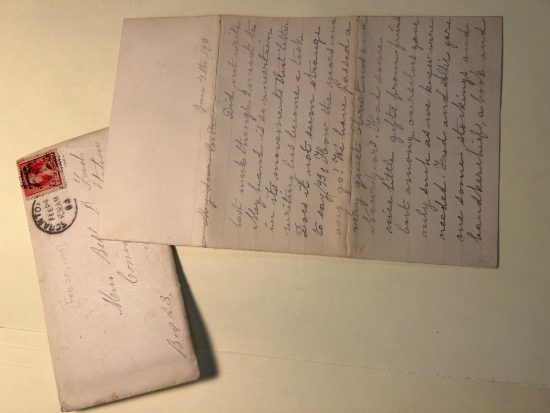 Jan 4th /93
My dear
Did not write
last week though I meant to
My hand is so uncertain
in its movements that letter
writing has become a task
Does it not seem strange
to say /93? How the years
go! We have passed a
very quiet Christmas and
New years. Had some
nice little gifts from friends
but among ourselves gave
only such as we knew were
needed. Fred and Allie gave
me some stockings and
handkerchiefs, a book and
FEB 24
630AM
Miss Bell
Conn
Box 23.
Feb 23